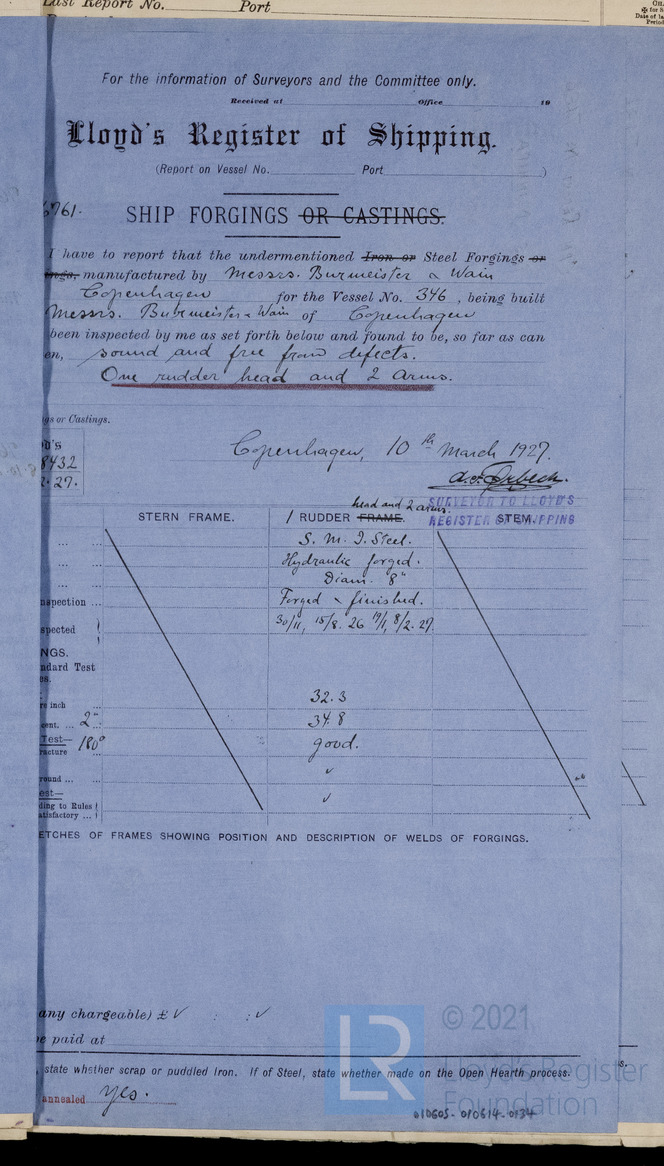 Last Report No. Port
For the information of Surveyors and the Committee only.
Received at Office 19
Lloyd's Register of Shipping.
(Report on Vessel No. Port )
6761. SHIP FORGINGS OR CASTINGS.
I have to report that the undermentioned Iron or Steel Forgings or
ngs, manufactured by Messrs. Burmeister & Wain
Copenhagen for the Vessel No. 346, being built
Messrs. Burmeister & Wain of Copenhagen
been inspected by me as set forth below and found to be, so far as can
en, sound and free from defects.
One rudder head and 2 arms.
gs or Castings.
d's
8432
2.27.
Copenhagen, 10th March 1927.
SURVEYOR TO LLOYD'S
REGISTER OF SHIPPING
head and 2 arms.
STERN FRAME. / RUDDER FRAME. STEM.
S. M. I. Steel.
Hydraulic forged.
Diam. 8"
nspection ... Forged & finished.
spected 30/11, 15/8. 26 19/1, 8/2. 27
NGS.
ndard Test
es.
re inch ... 32.3
cent. ... 2" 34.8
Test— 180° good.
racture
round ... ✓
est—
ding to Rules ✓
atisfactory ...
ETCHES OF FRAMES SHOWING POSITION AND DESCRIPTION OF WELDS OF FORGINGS.
any chargeable) £ ✓ : : ✓
e paid at
, state whether scrap or puddled Iron. If of Steel, state whether made on the Open Hearth process.
annealed Yes.
LR © 2021
Lloyd's Register
Foundation
010605-010614-0134